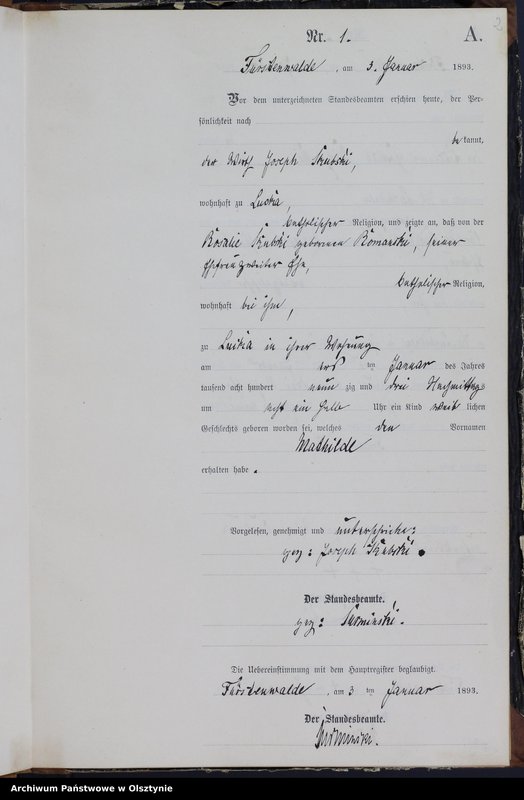 2
Nr. 1. A.
Fürstenwalde, am 3. Januar 1893.
Vor dem unterzeichneten Standesbeamten erschien heute, der Per-
sönlichkeit nach
bekannt,
der Wirth Joseph
wohnhaft zu
katholischer Religion, und zeigte an, daß von der
Rosalie geborenen Romanski, seiner
Ehefrau zweiter Ehe,
katholischer Religion,
wohnhaft bei ihm,
zu in ihrer Wohnung
am ersten Januar des Jahres
tausend acht hundert neun zig und drei Nachmittags
um acht ein halb Uhr ein Kind weiblichen
Geschlechts geboren worden sei, welches den Vornamen
Mathilde
erhalten habe.
Vorgelesen, genehmigt und unterschrieben:
gez: Joseph
Der Standesbeamte.
gez:
Die Uebereinstimmung mit dem Hauptregister beglaubigt.
Fürstenwalde, am 3ten Januar 1893.
Der Standesbeamte.
Archiwum Państwowe w Olsztynie